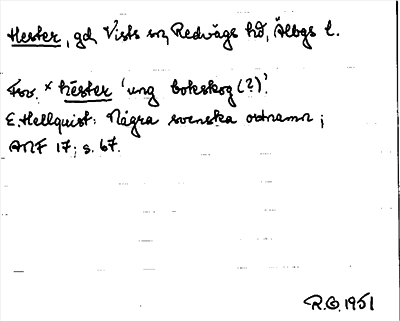 Hester, gd, Vists sn, Redvägs hd, Älvbgs l.
Fsv. × hēster 'ung bokskog (?)'.
E. Hellquist: Några svenska ortnamn;
ANF 17; s. 67.
R.O. 1951